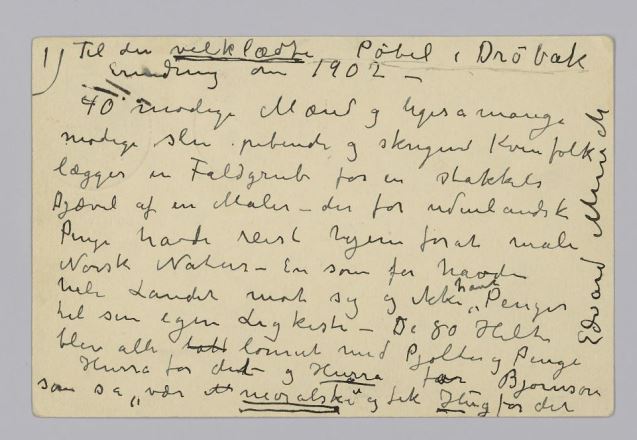 1) Til den velklædte Pöbel i Dröbak
Erindring om 1902 –
40 modige Mænd og ligesamange
modige slu pibende og skrigend Kvinfolk
lægger en Faldgrub for en stakkels
Djævel af en Maler – der for udenlandsk
Penge havde reist hjem forat male
Norsk Natur – En som før havde
hele Landet mot sig og ikke havt Penger
til sin egen Ligkiste – De 80 Helte
blev alle lønnet med Pjolter og Penge
Hurra for det og Hurra for Bjørnson
som sa „vær moralske" og fik Hug for det
Edvard Munch